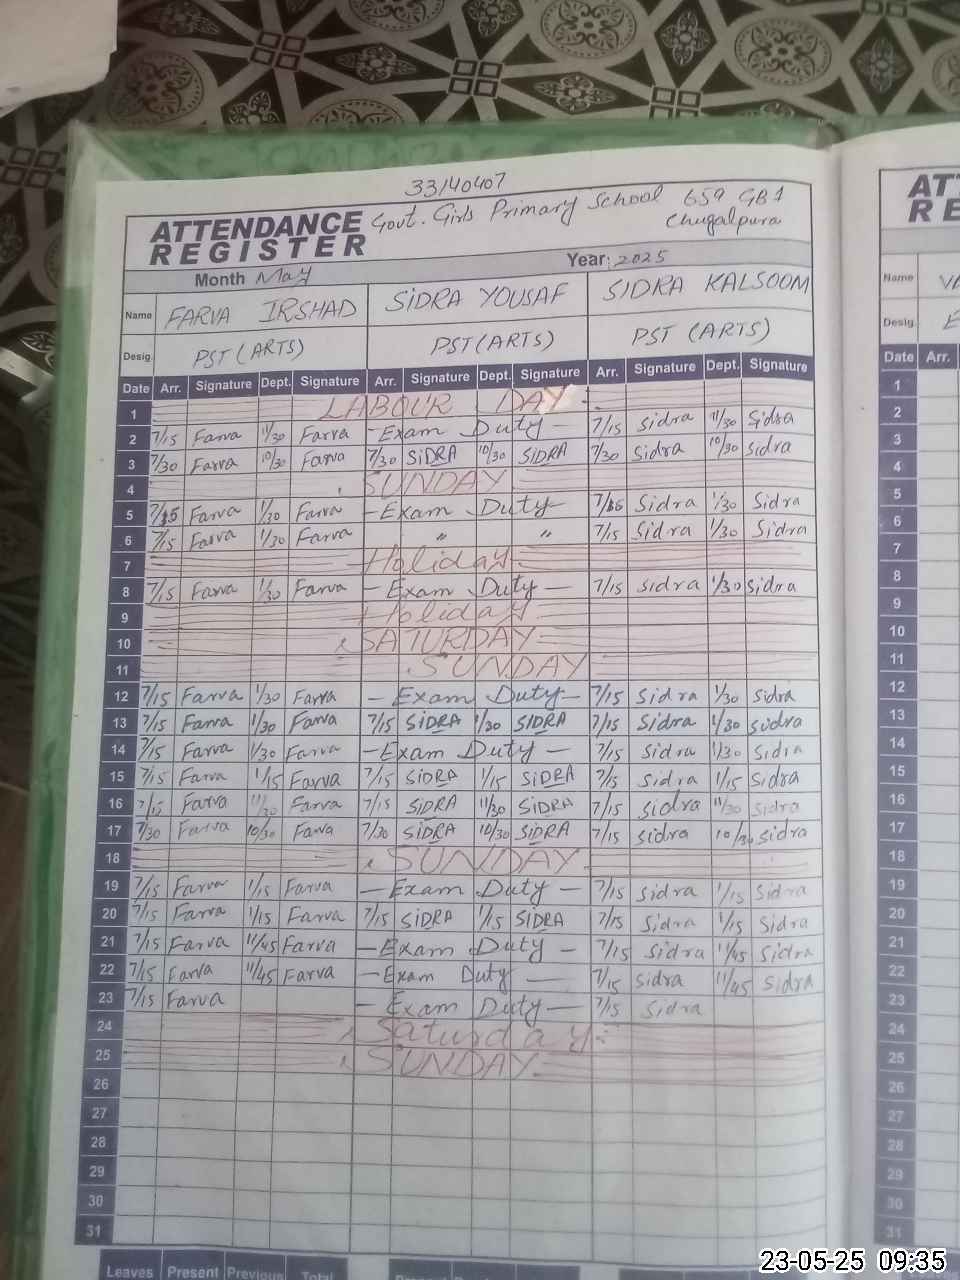 33140407
ATTENDANCE REGISTER Govt. Girls Primary School 659 GB 1
Chugalpura
Month May Year: 2025
Name FARVA IRSHAD SIDRA YOUSAF SIDRA KALSOOM Name
Desig. PST (ARTS) PST (ARTS) PST (ARTS) Desig.
Date Arr. Signature Dept. Signature Arr. Signature Dept. Signature Arr. Signature Dept. Signature Date Arr.
1 LABOUR DAY 1
2 7/15 Farva 11/30 Farva - Exam Duty - 7/15 Sidra 11/30 Sidra 2
3 7/30 Farva 10/30 Farva 7/30 SIDRA 10/30 SIDRA 7/30 Sidra 10/30 Sidra 3
4 SUNDAY 4
5 7/15 Farva 1/30 Farva - Exam Duty - Sidra 1/30 Sidra 5
6 7/15 Farva 1/30 Farva " " 7/15 Sidra 1/30 Sidra 6
7 Holiday 7
8 7/15 Farva 1/30 Farva - Exam Duty - 7/15 Sidra 1/30 Sidra 8
9 Holiday 9
10 SATURDAY 10
11 SUNDAY 11
12 7/15 Farva 1/30 Farva - Exam Duty - 7/15 Sidra 1/30 Sidra 12
13 7/15 Farva 1/30 Farva 7/15 SIDRA 1/30 SIDRA 7/15 Sidra 1/30 Sidra 13
14 7/15 Farva 1/30 Farva - Exam Duty - 7/15 Sidra 1/30 Sidra 14
15 7/15 Farva 1/15 Farva 7/15 SIDRA 1/15 SIDRA 7/15 Sidra 1/15 Sidra 15
16 7/15 Farva 11/30 Farva 7/15 SIDRA 11/30 SIDRA 7/15 Sidra 11/30 Sidra 16
17 7/30 Farva 10/30 Farva 7/30 SIDRA 10/30 SIDRA 7/15 Sidra 10/30 Sidra 17
18 SUNDAY 18
19 7/15 Farva 1/15 Farva - Exam Duty - 7/15 Sidra 1/15 Sidra 19
20 7/15 Farva 1/15 Farva 7/15 SIDRA 1/15 SIDRA 7/15 Sidra 1/15 Sidra 20
21 7/15 Farva 11/45 Farva - Exam Duty - 7/15 Sidra 11/45 Sidra 21
22 7/15 Farva 11/45 Farva - Exam Duty - 7/15 Sidra 11/45 Sidra 22
23 7/15 Farva - Exam Duty - 7/15 Sidra 23
24 Saturday 24
25 SUNDAY 25
26 26
27 27
28 28
29 29
30 30
31 31
Leaves Present Previous Total
23-05-25 09:35